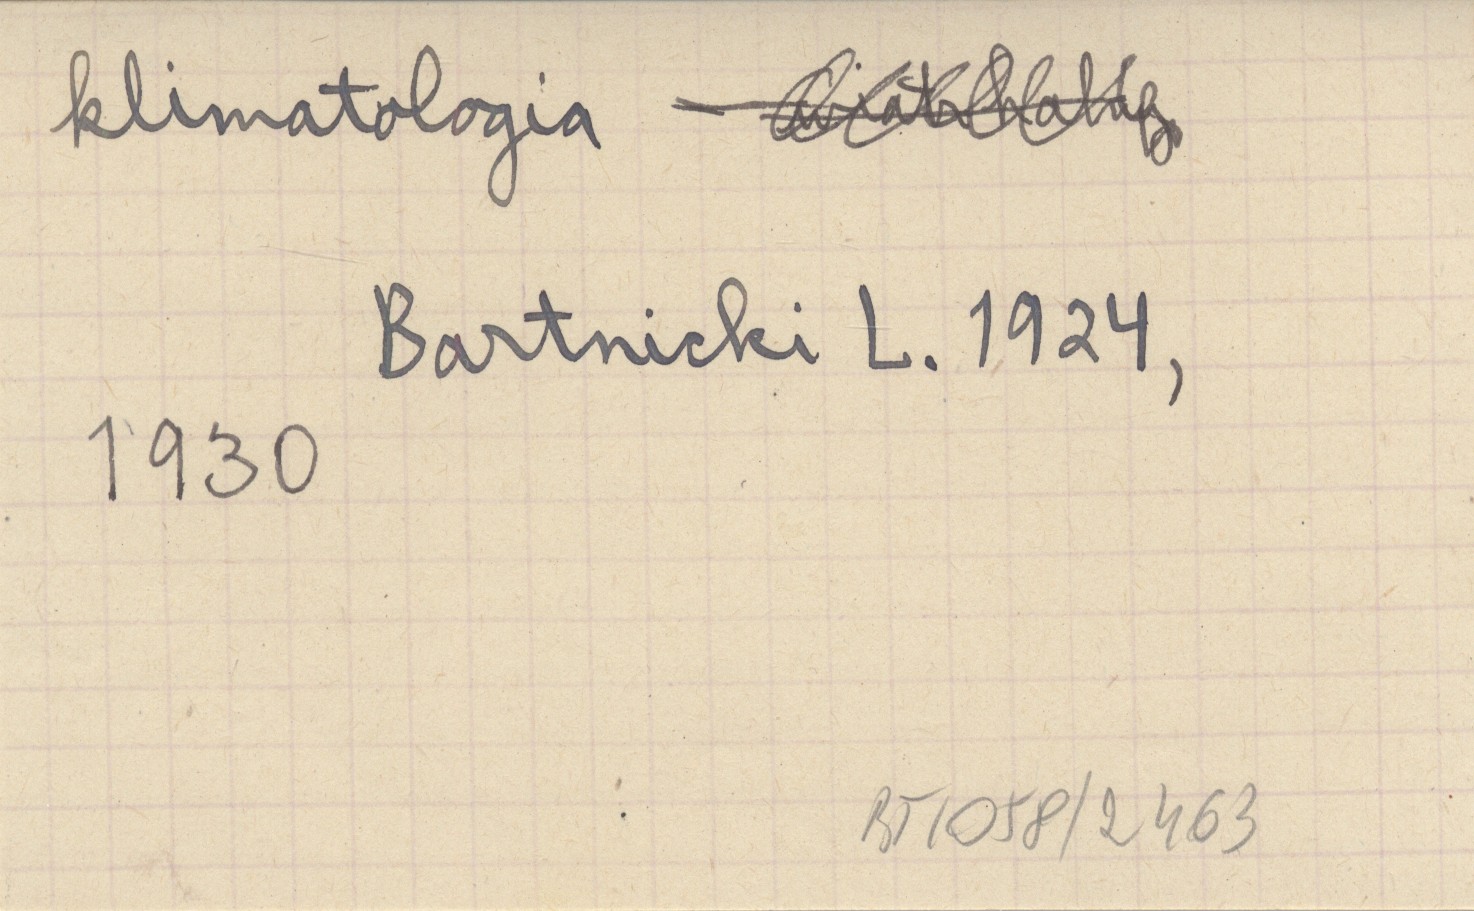 klimatologia –
Bartnicki L. 1924,
1930
BT1058/2463